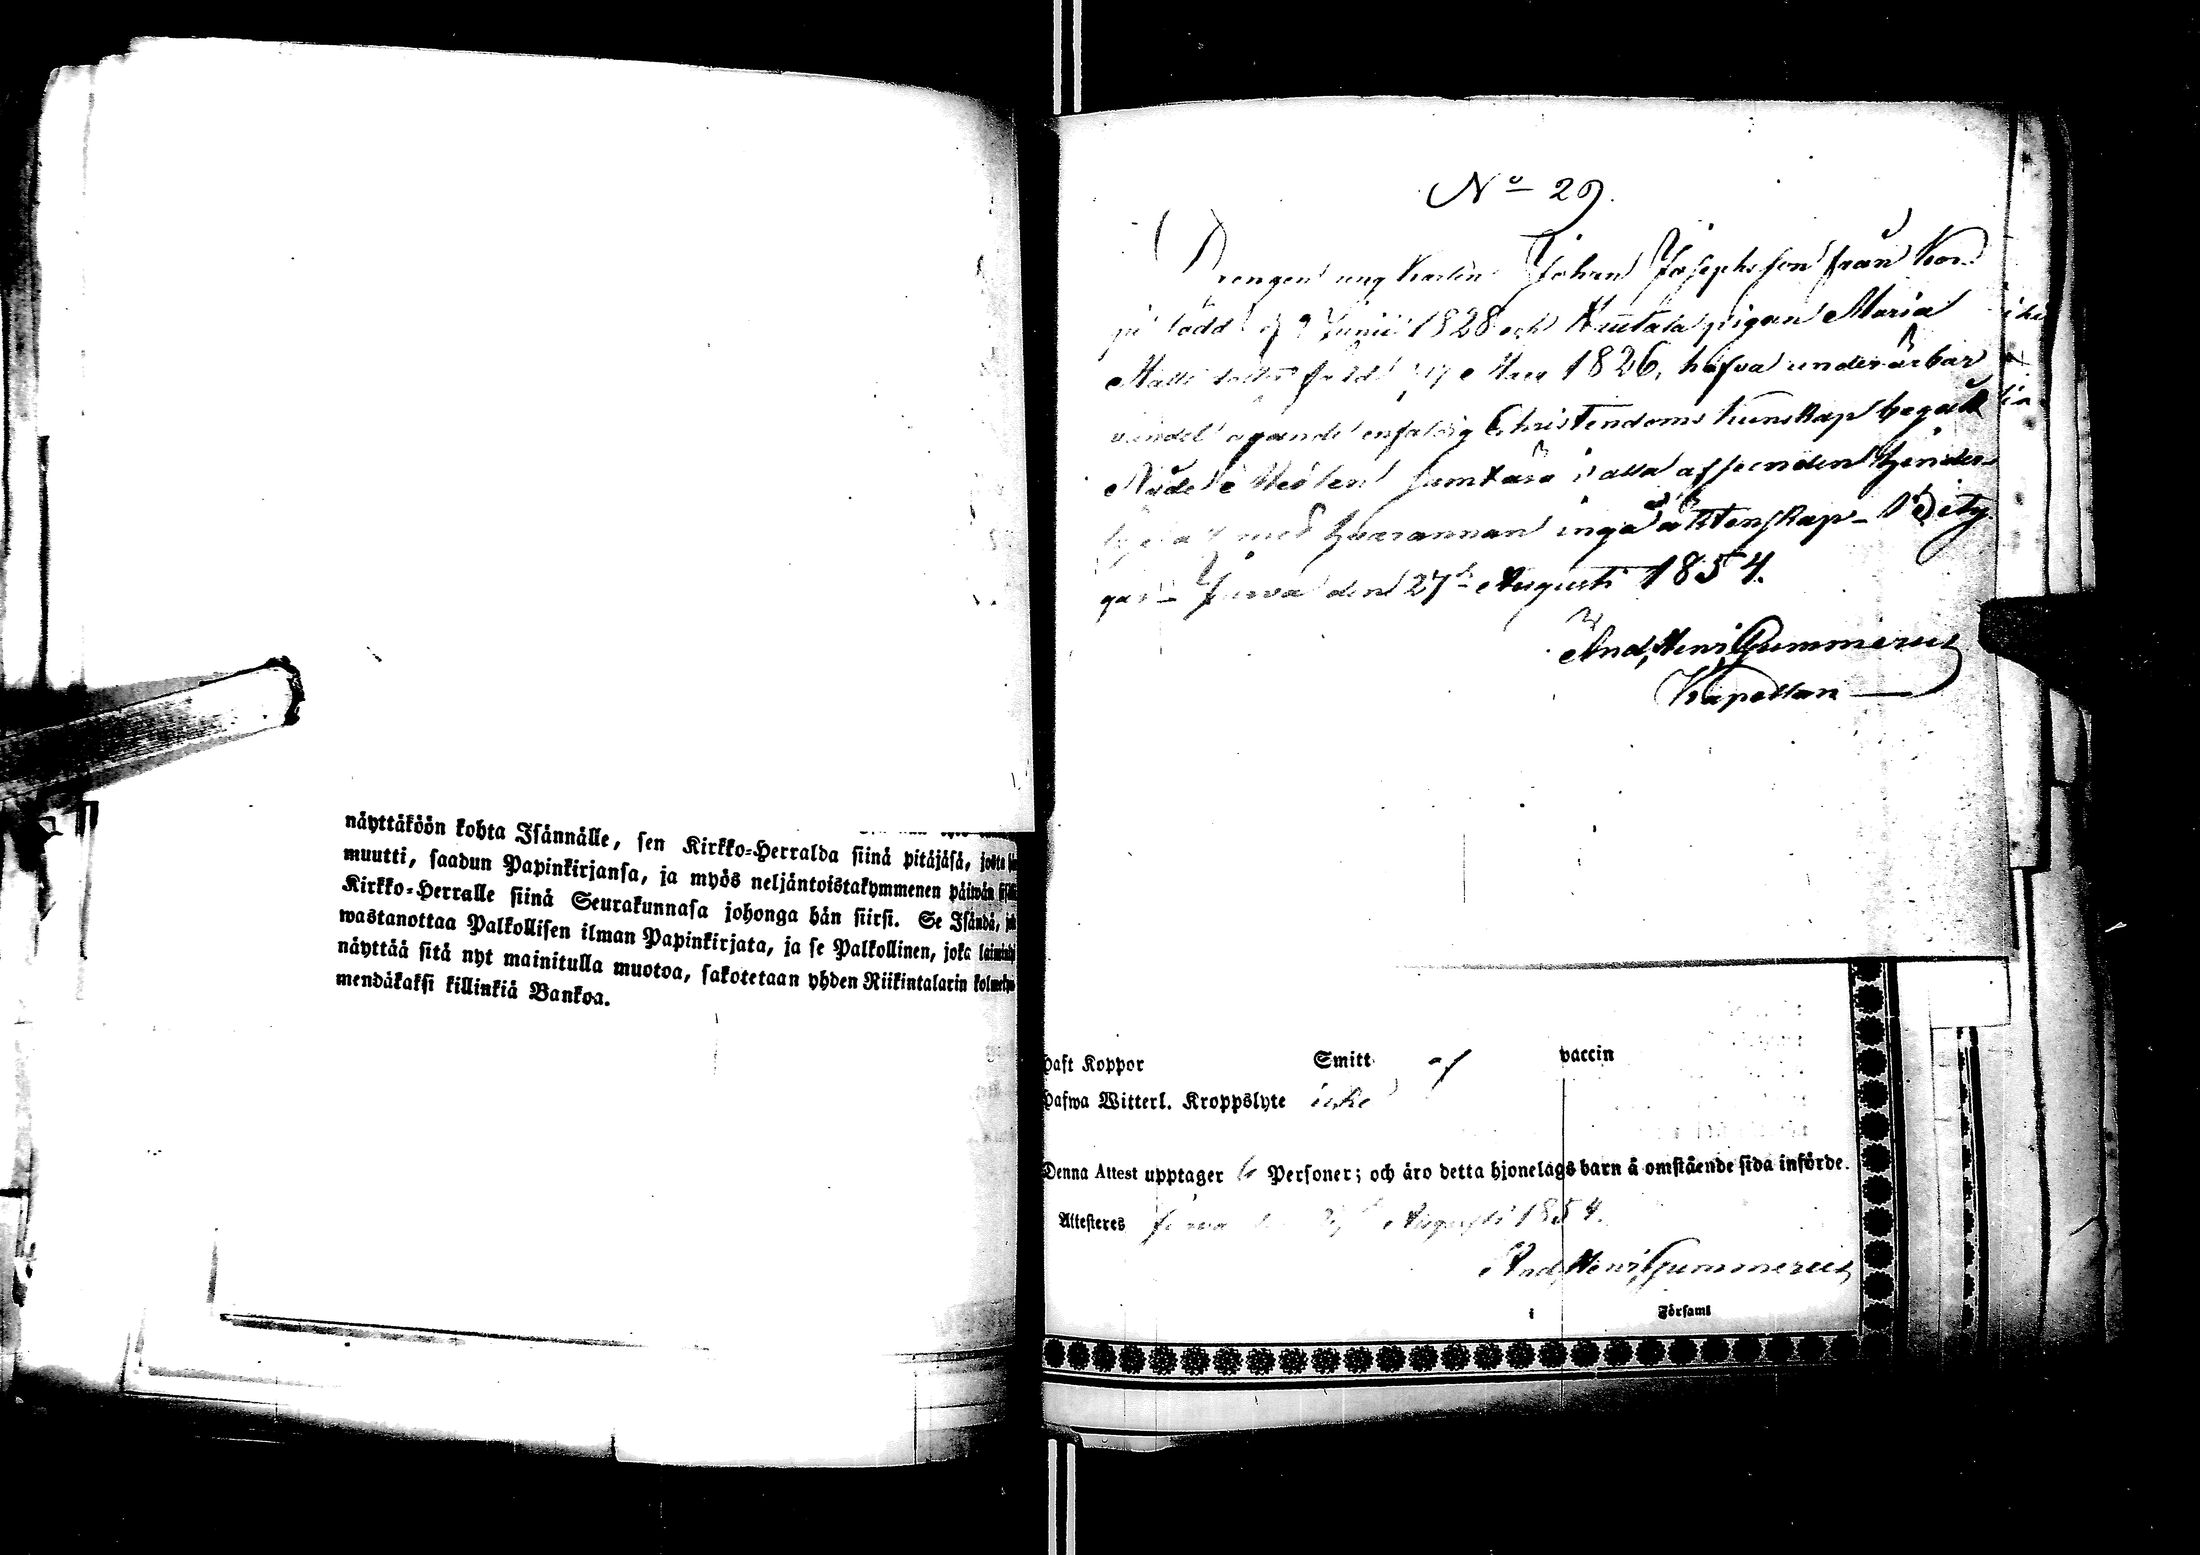 näyttäköön kohta Isännälle, sen Kirkko-Herralda siinä pitäjäsä, josta
muutti, saadun Papinkirjansa, ja myös neljäntoistakymmenen päiwän
Kirkko-Herralle siinä Seurakunnasa johonga hän siirsi. Se Isändä,
wastanottaa Palkollisen ilman Papinkirjata, ja se Palkollinen, joka
näyttää sitä nyt mainitulla muotoa, sakotetaan yhden Riikintalarin
mendäkaksi killinkiä Bankoa.
No 29.
Drengen ung Karlen Johan Josephsson från
född d 9 Junii 1828 och pigan Maria
född 1826, hafva under ärbar
vandel ägande enfaldig Christendoms kunskap begått
i alla afseenden hinder
med hvarannan ingå äktenskap - Bety
gas - Jurva den 27de Augusti 1854.
And, Henr, Gummerus
Kapellan
haft Koppor Smitt af vaccin
hafwa Witterl. Kroppslyte icke
Denna Attest upptager 6 Personer; och äro detta hjonelags barn å omstående sida införde.
Attesteres Jurva Augusti 1854.
And, Henr, Gummerus
i Församl